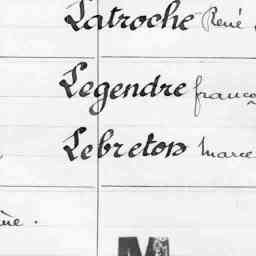 Latroche René
Legendre
Lebreton
M